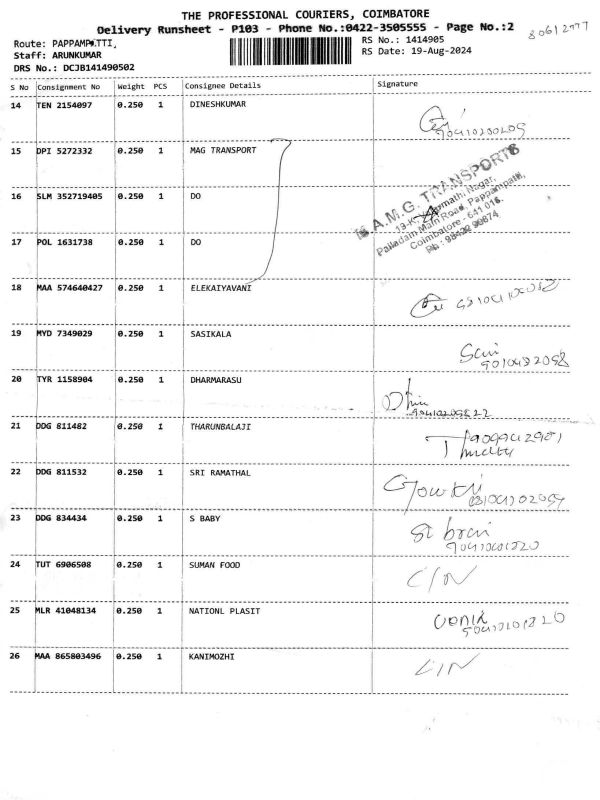 THE PROFESSIONAL COURIERS, COIMBATORE
Delivery Runsheet - P103 - Phone No.:0422-3505555 - Page No.:2
Route: PAPPAMPATTI,
RS No.: 1414905
Staff: ARUNKUMAR
RS Date: 19-Aug-2024
DRS No.: DCJB141490502
S No Consignment No Weight PCS Consignee Details Signature
14 TEN 2154097 0.250 1 DINESHKUMAR
15 DPI 5272332 0.250 1 MAG TRANSPORT
16 SLM 352719405 0.250 1 DO
17 POL 1631738 0.250 1 DO
A.M.G. TRANSPORTS
Palladam Main Road, Pappampatti,
Coimbatore - 641 016.
18 MAA 574640427 0.250 1 ELEKAIYAVANI
19 MYD 7349029 0.250 1 SASIKALA
20 TYR 1158904 0.250 1 DHARMARASU
21 DDG 811482 0.250 1 THARUNBALAJI
22 DDG 811532 0.250 1 SRI RAMATHAL
23 DDG 834434 0.250 1 S BABY
24 TUT 6906508 0.250 1 SUMAN FOOD
C/N
25 MLR 41048134 0.250 1 NATIONL PLASIT
26 MAA 865803496 0.250 1 KANIMOZHI